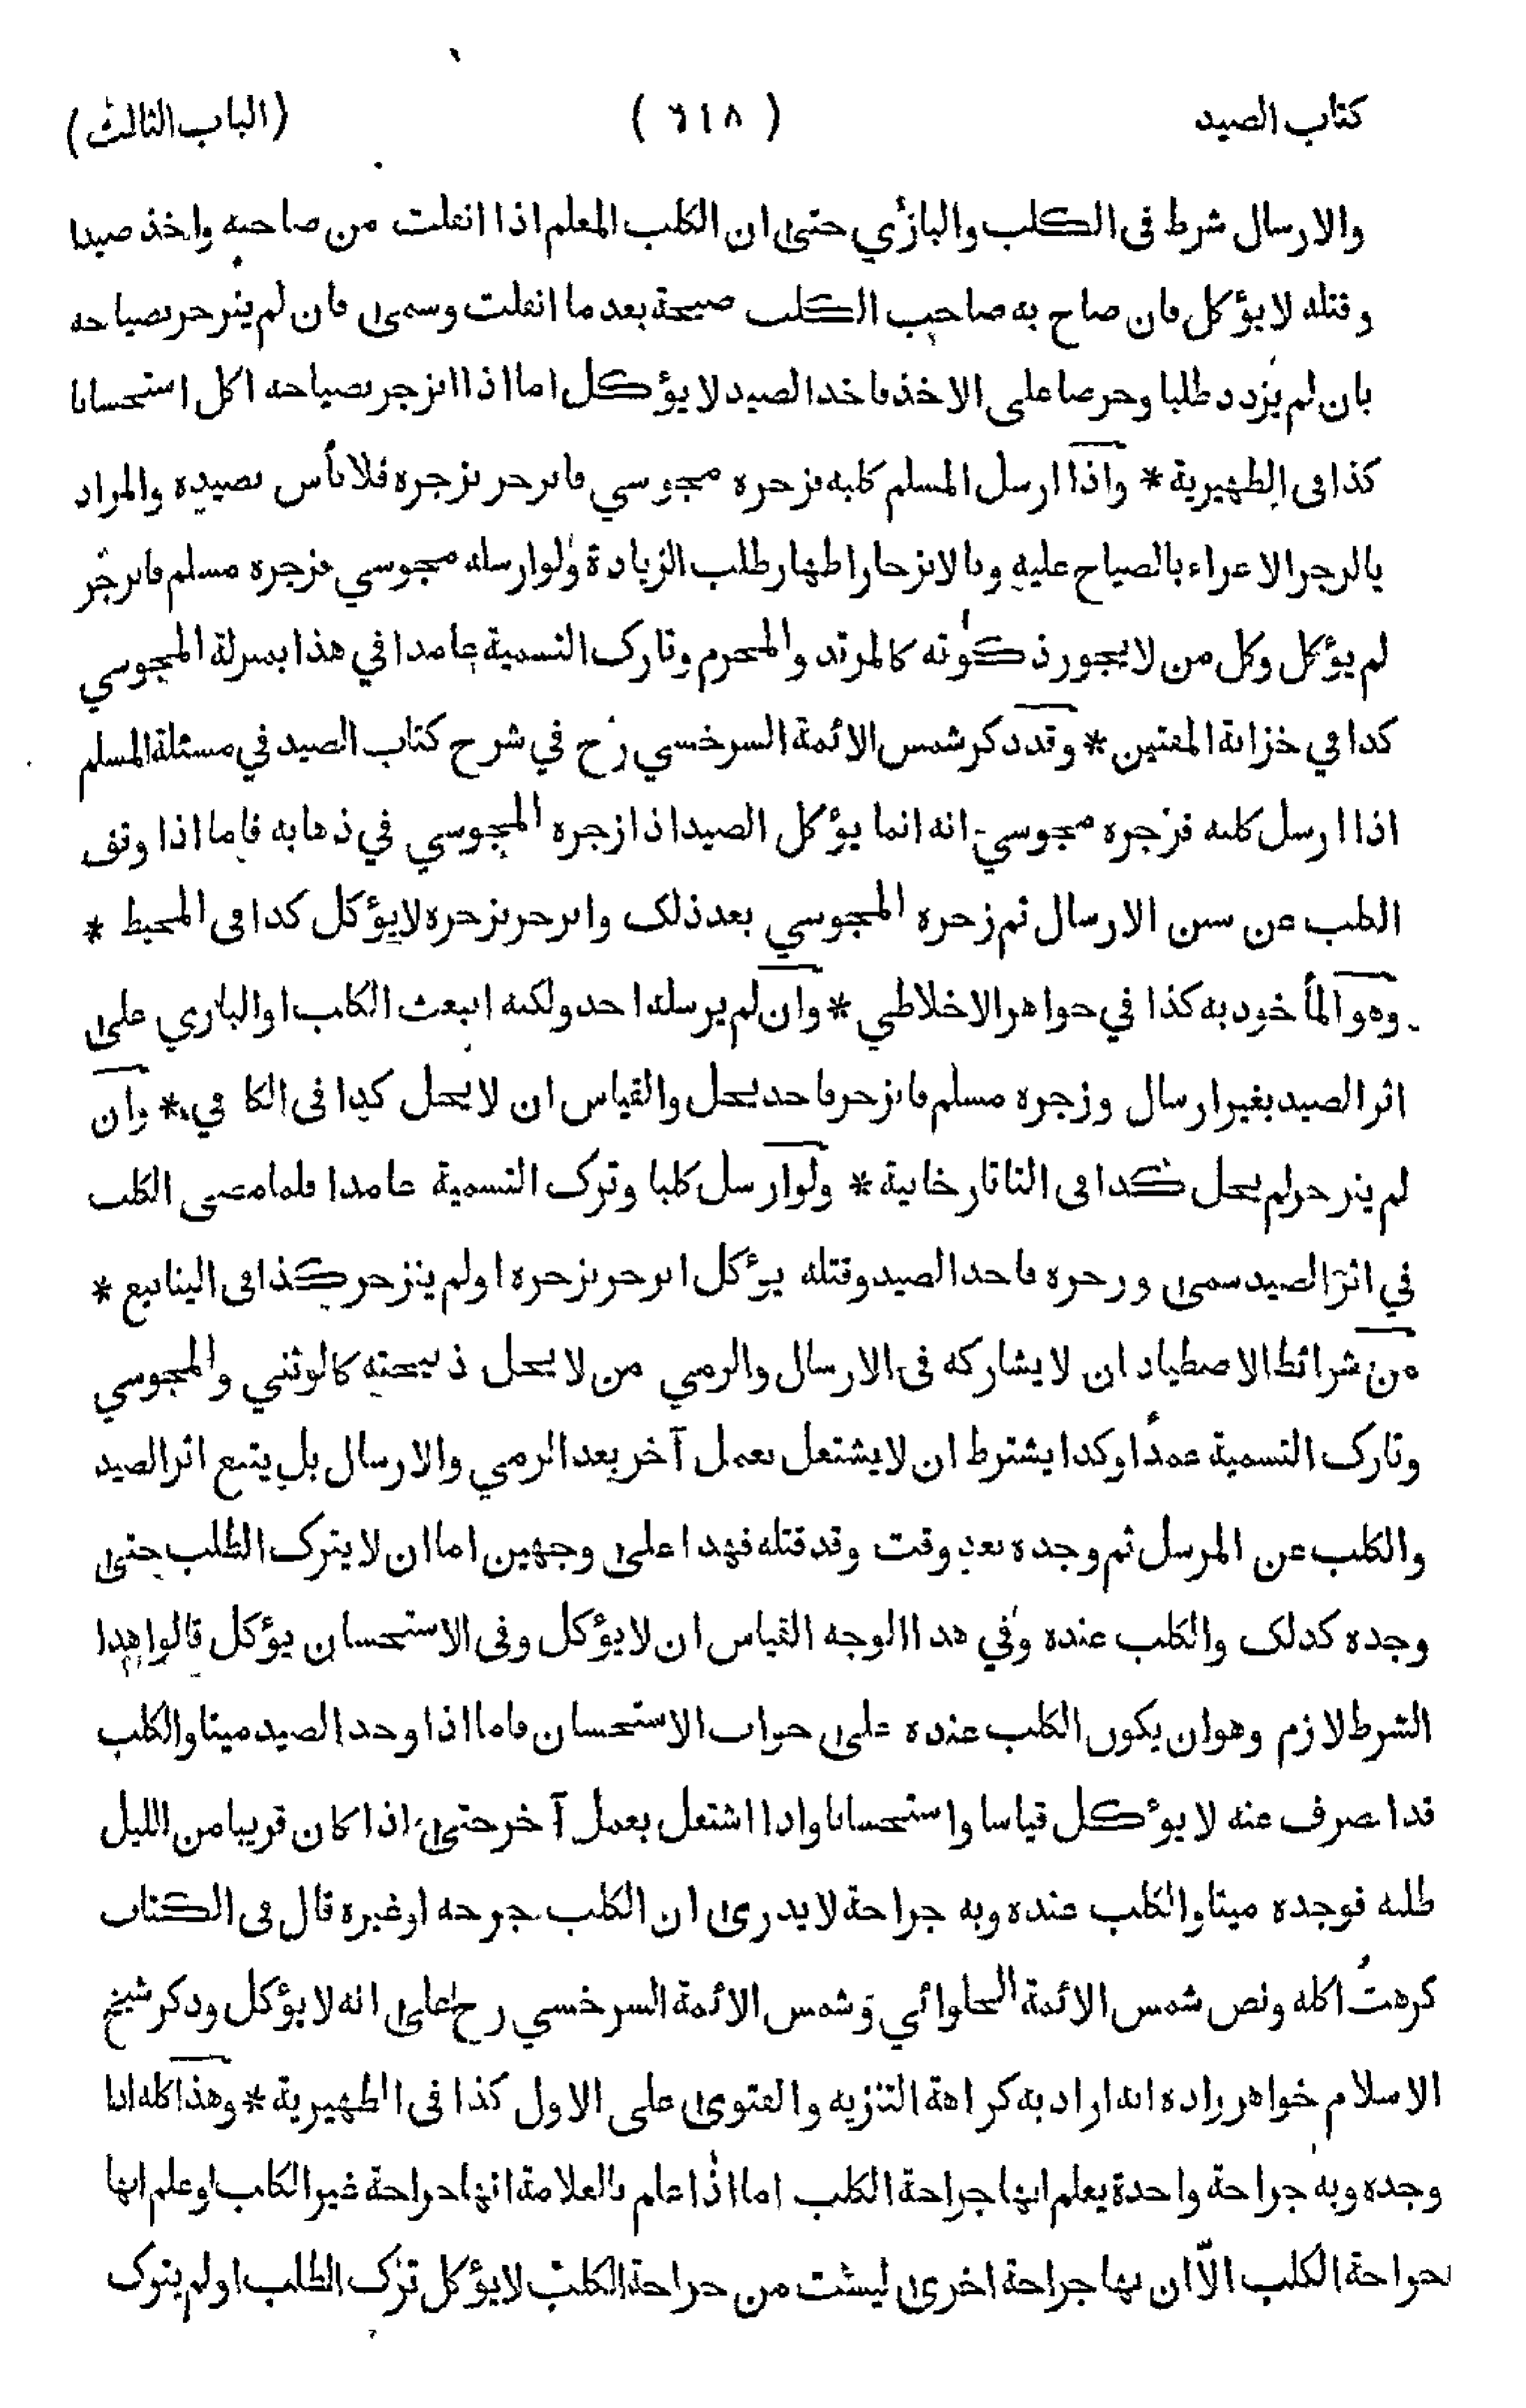 كتاب الصيد ( ٦١٨ ) (الباب الثالث)
والارسال شرط فى الكلب والبازي حتى ان الكلب المعلم اذا انفلت من صاحبه واخذ صيدا
وقتله لا يؤكل فان صاح به صاحب الكلب صيحة بعد ما انفلت وسمى فان لم ينزجر بصياحه
بان لم يزدد طلبا وحرصا على الاخذ فاخذ الصيد لا يؤكل اما اذا انزجر بصياحه اكل استحسانا
كذا فى الظهيرية * واذا ارسل المسلم كلبه فزجره مجوسي فانزجر بزجره فلا بأس بصيده والمراد
بالزجر الاغراء بالصياح عليه وبالانزجار اظهار طلب الزيادة ولو ارسله مجوسي فزجره مسلم فانزجر
لم يؤكل وكل من لا يجوز ذكوته كالمرتد والمحرم وتارك التسمية عامدا في هذا بمنزلة المجوسي
كذا في خزانة المفتين * وقد ذكر شمس الائمة السرخسي رح في شرح كتاب الصيد في مسئلة المسلم
اذا ارسل كلبه فزجره مجوسي انه انما يؤكل الصيد اذا زجره المجوسي في ذهابه فاما اذا وقف
الكلب عن سنن الارسال ثم زجره المجوسي بعد ذلك وانزجر بزجره لا يؤكل كذا فى المحيط *
وهو المأخوذ به كذا في جواهر الاخلاطي * وان لم يرسله احد ولكنه انبعث الكلب او البازي على
اثر الصيد بغير ارسال وزجره مسلم فانزجر فاخذ يحل والقياس ان لا يحل كذا فى الكافي * وان
لم ينزجر لم يحل كذا فى التاتارخانية * ولو ارسل كلبا وترك التسمية عامدا فلما مضى الكلب
في اثر الصيد سمى وزجره فاخذ الصيد وقتله يؤكل انزجر بزجره او لم ينزجر كذا فى الينابيع *
من شرائط الاصطياد ان لا يشاركه فى الارسال والرمي من لا يحل ذبيحته كالوثني والمجوسي
وتارك التسمية عمدا وكذا يشترط ان لا يشتغل بعمل آخر بعد الرمي والارسال بل يتبع اثر الصيد
والكلب عن المرسل ثم وجده بعد وقت وقد قتله فهذا على وجهين اما ان لا يترك الطلب حتى
وجده كذلك والكلب عنده وفي هذا الوجه القياس ان لا يؤكل وفى الاستحسان يؤكل قالوا هذا
الشرط لازم وهو ان يكون الكلب عنده على جواب الاستحسان فاما اذا وجد الصيد ميتا والكلب
قد انصرف عنه لا يؤكل قياسا واستحسانا واذا اشتغل بعمل آخر حتى اذا كان قريبا من الليل
طلبه فوجده ميتا والكلب عنده وبه جراحة لا يدرى ان الكلب جرحه او غيره قال فى الكتاب
كرهت اكله ونص شمس الائمة الحلوائي وشمس الائمة السرخسي رح على انه لا يؤكل وذكر شيخ
الاسلام خواهر زاده انه اراد به كراهة التنزيه والفتوى على الاول كذا فى الظهيرية * وهذا كله اذا
وجده وبه جراحة واحدة يعلم انها جراحة الكلب اما اذا علم بالعلامة انها جراحة غير الكلب او علم انها
جراحة الكلب الّا ان بها جراحة اخرى ليست من جراحة الكلب لا يؤكل ترك الطلب او لم يترك